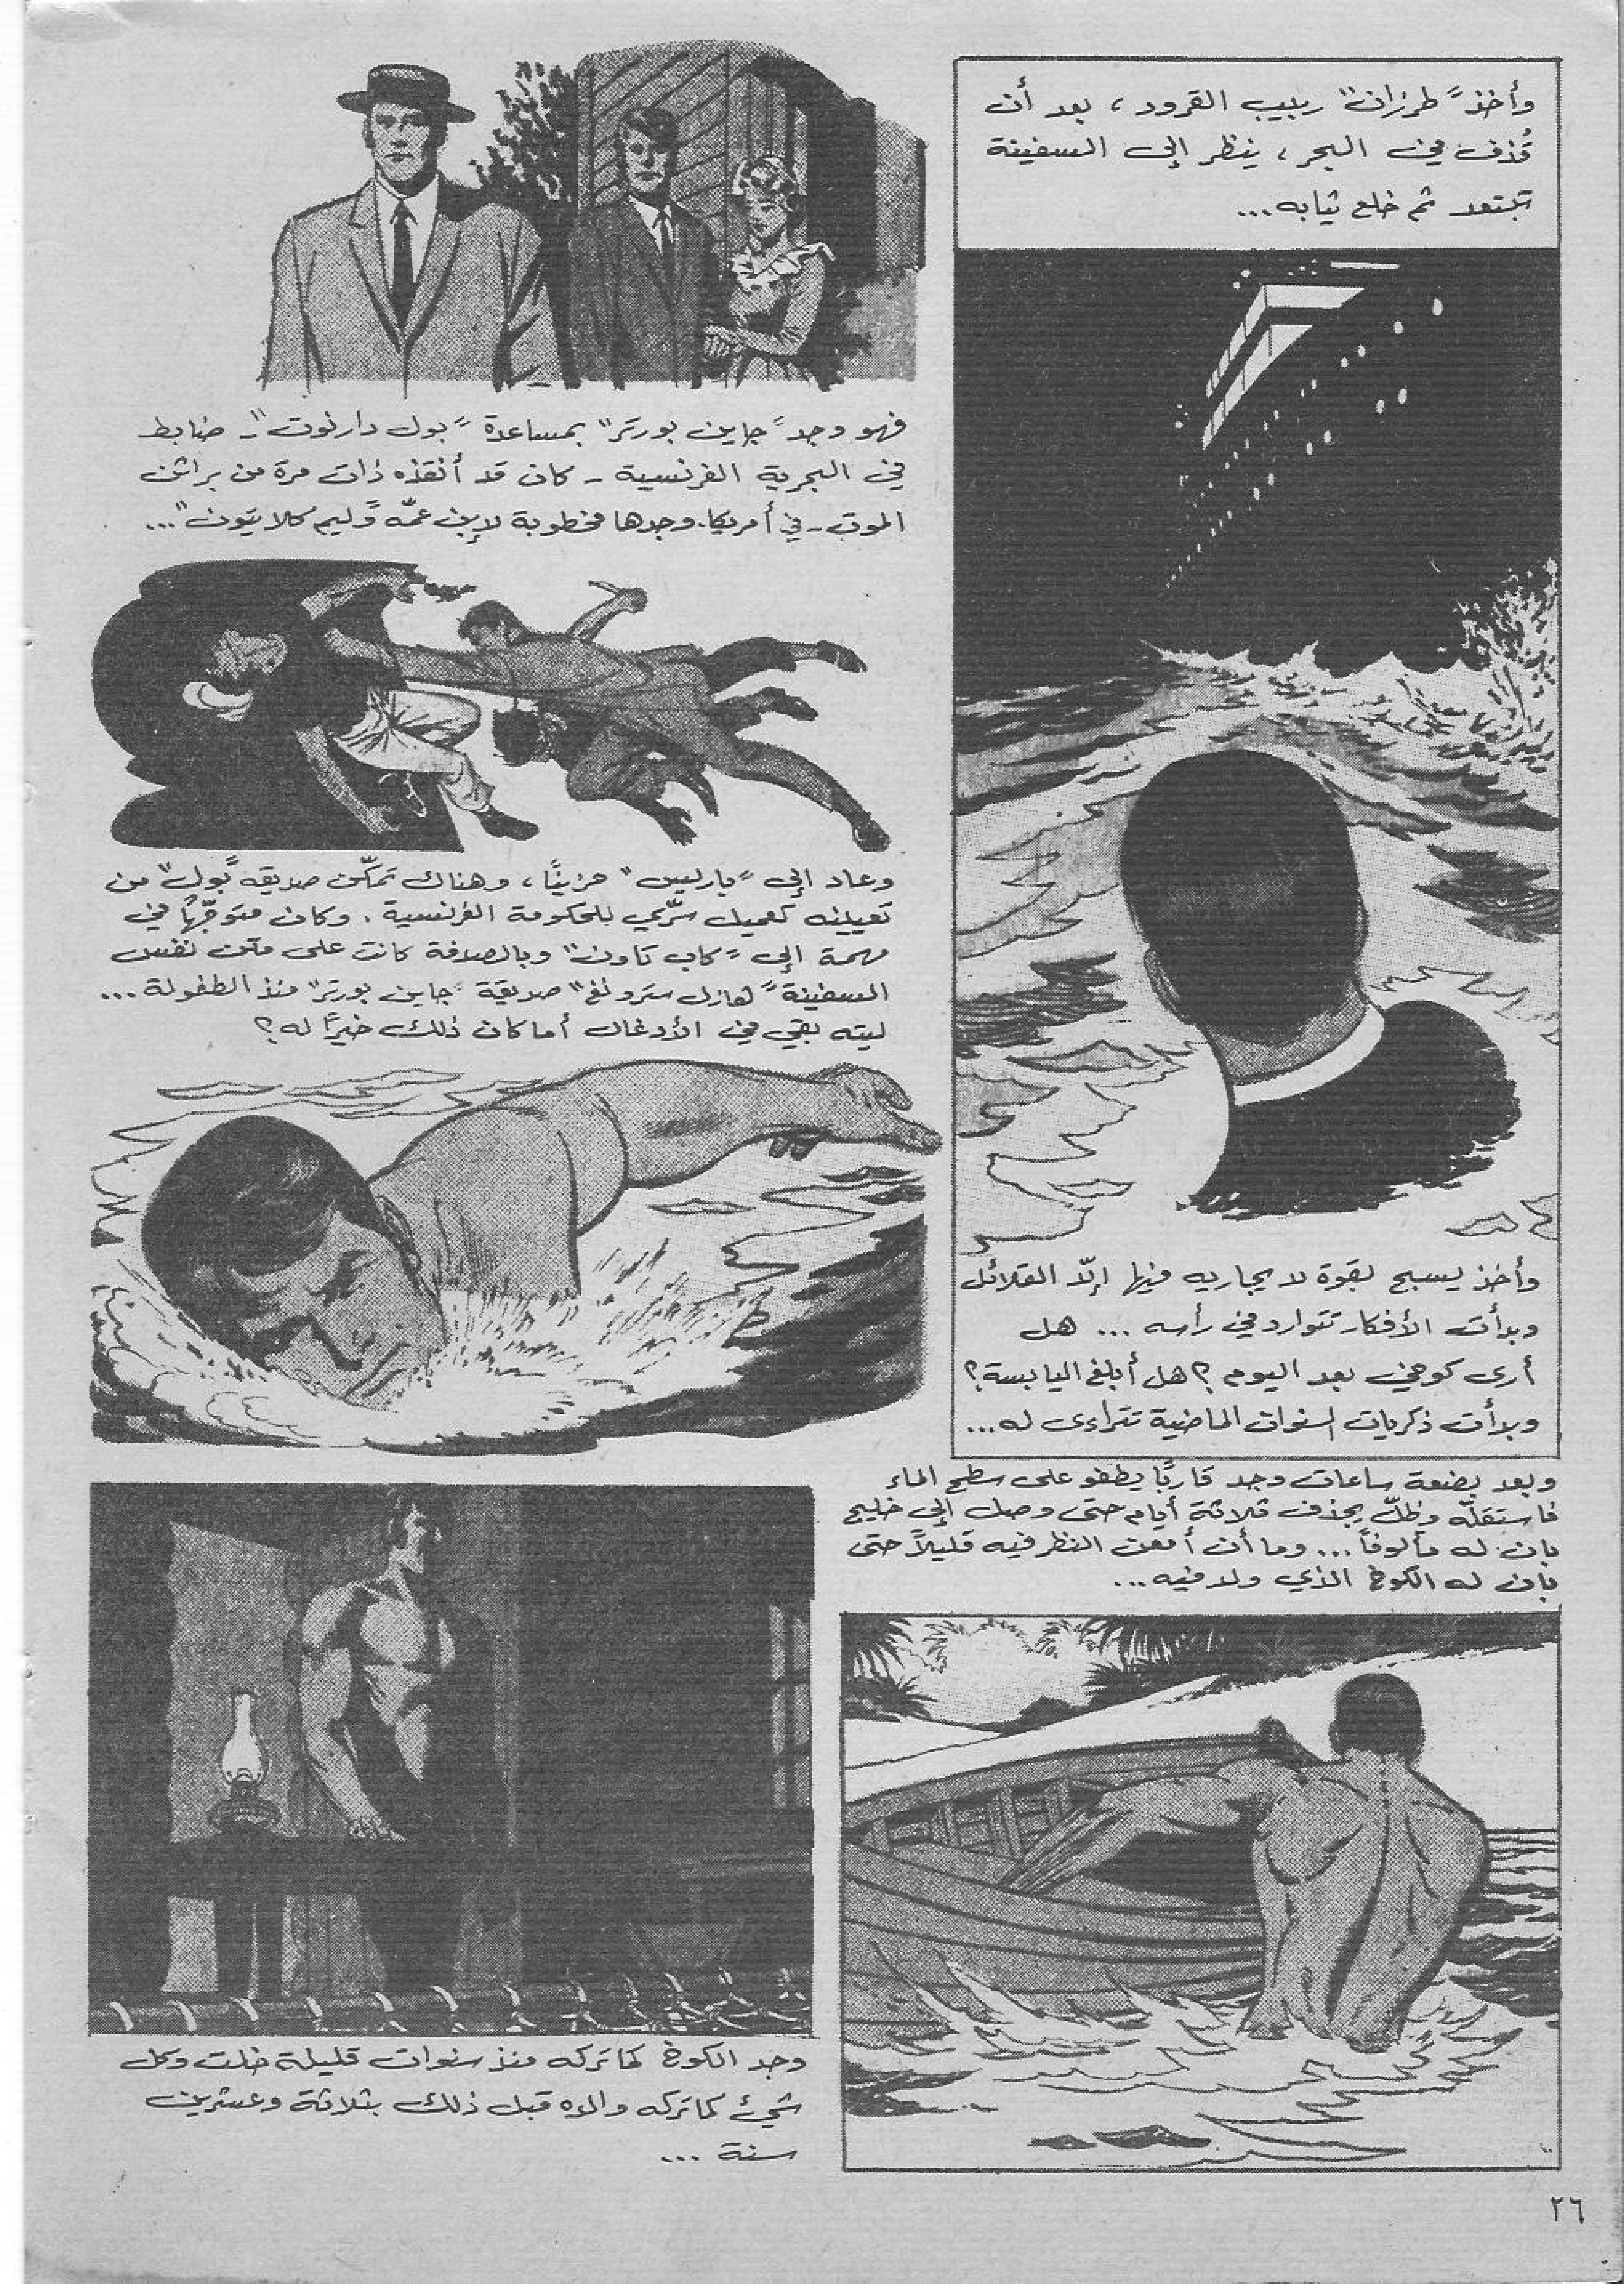 وأخذ "طرزان" ربيب القرود، بعد أن
قُذف في البحر، ينظر إلى السفينة
تبتعد ثم خلع ثيابه...
وأخذ يسبح بقوة لا يجاريه فيها إلّا القلائل
وبدأت الأفكار تتوارد في رأسه... هل
أرى كوخي بعد اليوم؟ هل أبلغ اليابسة؟
وبدأت ذكريات السنوات الماضية تتراءى له...
فهو وجد "جاين بورتر" بمساعدة "بول دارنوت" - ضابط
في البحرية الفرنسية - كان قد أنقذه ذات مرة من براثن
الموت - في أمريكا. وجدها مخطوبة لإبن عمّه "وليم كلايتون"...
وعاد إلى "باريس" حزينًا، وهناك تمكّن صديقه "بول" من
تعيينه كعميل سرّي للحكومة الفرنسية. وكان متوجّهًا في
مهمة إلى "كاب تاون" وبالصدفة كانت على متن نفس
السفينة "هازل سترونغ" صديقة "جاين بورتر" منذ الطفولة...
ليته بقي في الأدغال أما كان ذلك خيرًا له؟
وبعد بضعة ساعات وجد قاربًا يطفو على سطح الماء
فاستقلّه وظلّ يجذف ثلاثة أيام حتى وصل إلى خليج
بان له مألوفًا... وما أن أمعن النظر فيه قليلاً حتى
بان له الكوخ الذي ولد فيه...
وجد الكوخ كما تركه منذ سنوات قليلة خلت وكل
شيء كما تركه والده قبل ذلك بثلاثة وعشرين
سنة...
٢٦